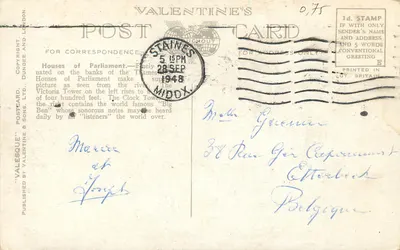 VALENTINE'S
POST CARD
FOR CORRESPONDENCE
0,75
1d. STAMP
IF WITH ONLY
SENDER'S NAME
AND ADDRESS
AND 5 WORDS
CONVENTIONAL
GREETING
PRINTED IN
GT. BRITAIN
STAINES
5 15PM
28 SEP
1948
MIDDX.
Houses of Parliament.
on the banks of the Thames
Houses of Parliament make
picture as seen from the river
Victoria Tower on the left rises to
of four hundred feet. The Clock Tower
the right contains the world famous "Big
Ben" whose sonorous notes may be heard
daily by "listeners" the world over.
VALESQUE POSTCARD. COPYRIGHT.
PUBLISHED BY VALENTINE & SONS, LTD. DUNDEE AND LONDON.
Maria
et
Joseph
Melle
38 Rue
Etterbeek
Belgique